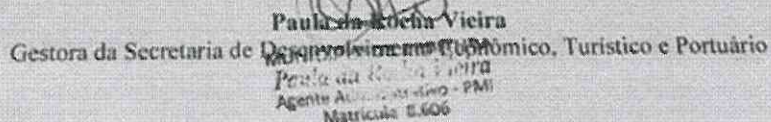 Paula da Rocha Vieira
Gestora da Secretaria de Desenvolvimento Econômico, Turístico e Portuário
Paula da Rocha Vieira
Agente - PMI
Matricula 8.606